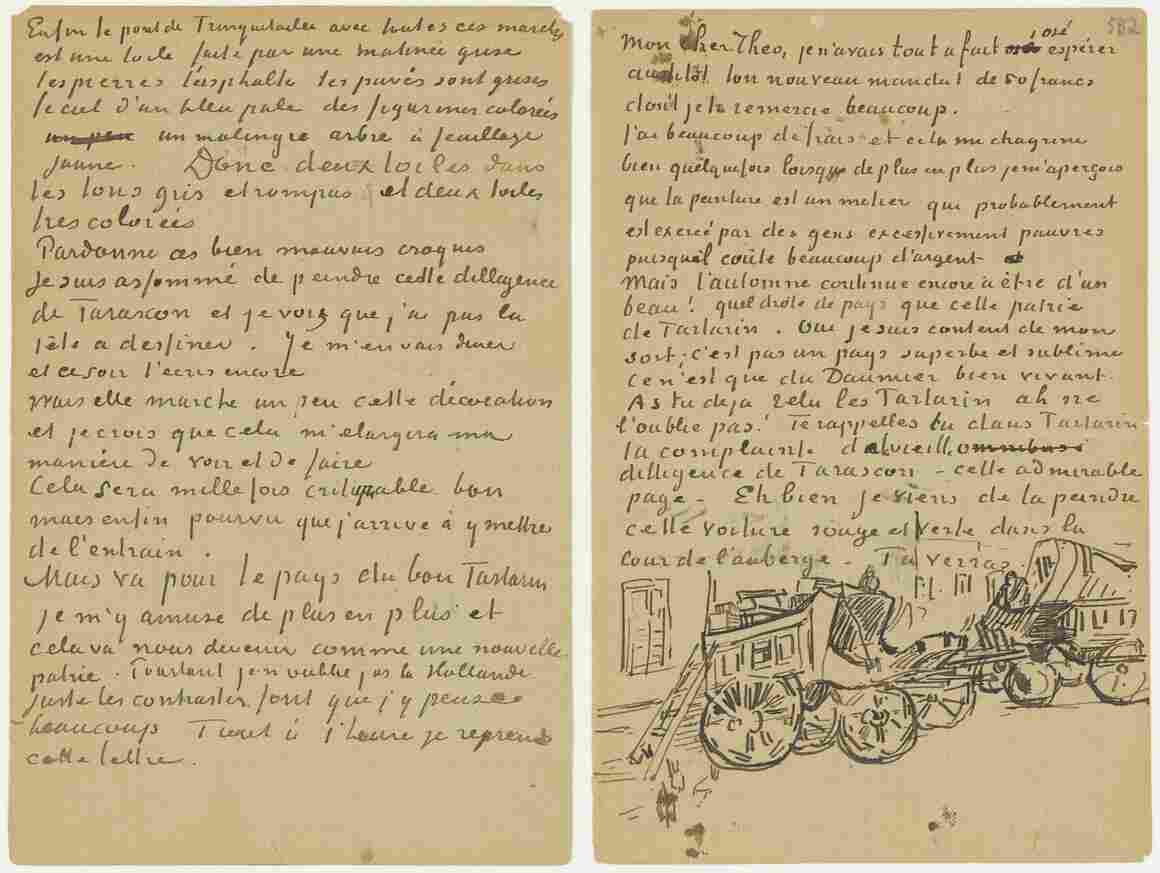 Enfin le pont de Trinquetaille avec toutes ces marches
est une toile faite par une matinée grise
les pierres l'asphalte les pavés sont grises
le ciel d'un bleu pale des figurines colorées
un malingre arbre à feuillage
jaune. Donc deux toiles dans
les tons gris et rompus et deux toiles
tres colorées
Pardonne ces bien mauvais croquis
Je suis assommé de peindre cette dilligence
de Tarascon et je vois que j'ai pas la
tête a dessiner. Je m'en vais diner
et ce soir t'ecris encore
mais elle marche un peu cette décoration
et je crois que cela m'elargira ma
manière de voir et de faire
Cela sera mille fois critiquable. bon
mais enfin pourvu que j'arrive à y mettre
de l'entrain.
Mais va pour le pays du bon Tartarin
je m'y amuse de plus en plus et
cela va nous devenir comme une nouvelle
patrie. Pourtant je n'oublie pas la Hollande
juste les contrastes font que j'y pense
beaucoup Tout à l'heure je reprends
cette lettre.
582
Mon cher Theo, je n'avais tout a fait osé espérer
aussitôt ton nouveau mandat de 50 francs
dont je te remercie beaucoup.
J'ai beaucoup de frais et cela me chagrine
bien quelquefois lorsque de plus en plus je m'aperçois
que la peinture est un metier qui probablement
est exercé par des gens excessivement pauvres
puisqu'il coute beaucoup d'argent
Mais l'automne continue encore à être d'un
beau! quel drôle de pays que cette patrie
de Tartarin. Oui je suis content de mon
sort; c'est pas un pays superbe et sublime
ce n'est que du Daumier bien vivant.
As tu deja relu les Tartarin ah ne
l'oublie pas! Te rappelles tu dans Tartarin
la complainte de la vieille omnibus
dilligence de Tarascon – cette admirable
page – Eh bien je viens de la peindre
cette voiture rouge et verte dans la
cour de l'auberge – Tu verras.